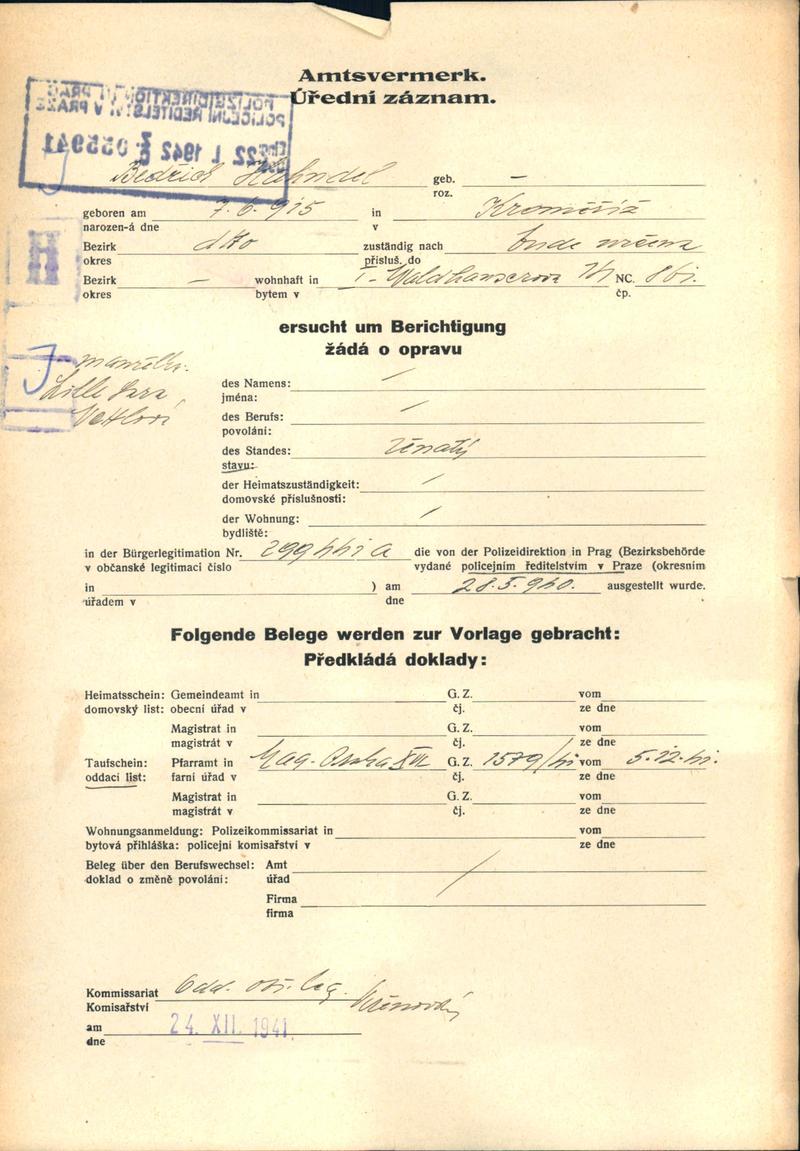 Amtsvermerk.
Úřední záznam.
POLIZEIDIREKTION IN PRAG
POLICEJNÍ ŘEDITELSTVÍ V PRAZE
22. I. 1942 055941
Bedřich geb. –
roz.
geboren am 7. 6. 915 in Kroměříž
narozen-á dne v
Bezirk dtto zuständig nach
okres přísluš. do
Bezirk – wohnhaft in I- NC.
okres bytem v čp.
ersucht um Berichtigung
žádá o opravu
manželka:
J
des Namens: /
jména:
des Berufs: /
povolání:
des Standes: ženatý
stavu:
der Heimatszuständigkeit: /
domovské příslušnosti:
der Wohnung: /
bydliště:
in der Bürgerlegitimation Nr. die von der Polizeidirektion in Prag (Bezirksbehörde
v občanské legitimaci číslo vydané policejním ředitelstvím v Praze (okresním
in ) am 28. 5. 940. ausgestellt wurde.
úřadem v dne
Folgende Belege werden zur Vorlage gebracht:
Předkládá doklady:
Heimatsschein: Gemeindeamt in G. Z. vom
domovský list: obecní úřad v čj. ze dne
Magistrat in G. Z. vom
magistrát v čj. ze dne
Taufschein: Pfarramt in Mag. Praha XII G. Z. 1579/41 vom 5. 12. 41.
oddací list: farní úřad v čj. ze dne
Magistrat in G. Z. vom
magistrát v čj. ze dne
Wohnungsanmeldung: Polizeikommissariat in vom
bytová přihláška: policejní komisařství v ze dne
Beleg über den Berufswechsel: Amt
doklad o změně povolání: úřad /
Firma
firma
Kommissariat Odd. obč. leg.
Komisařství
am 24. XII. 1941
dne